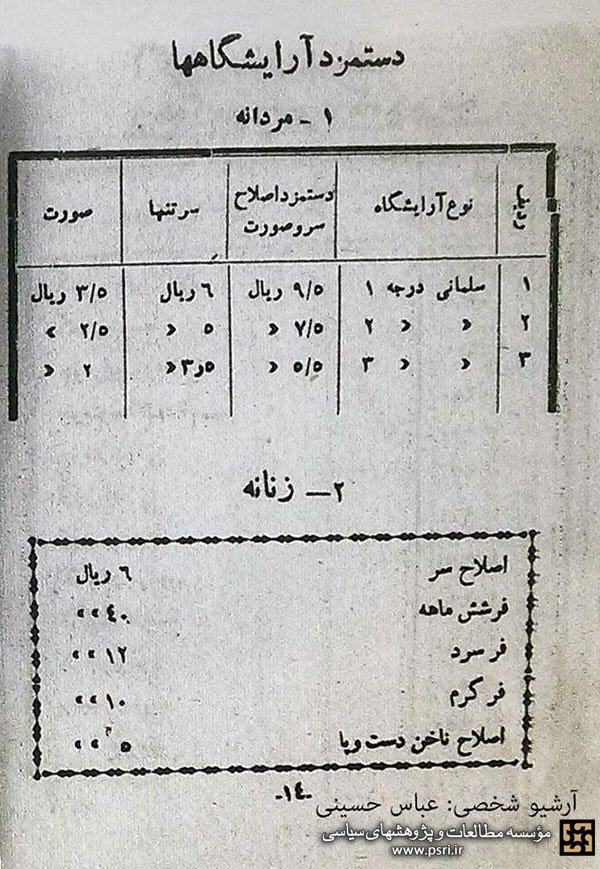 دستمزد آرایشگاهها
۱ - مردانه
ردیف نوع آرایشگاه دستمزد اصلاح سر و صورت سر تنها صورت
۱ سلمانی درجه ۱ ۹/۵ ریال ۶ ریال ۳/۵ ریال
۲ » » ۲ ۷/۵ » ۵ » ۲/۵ »
۳ » » ۳ ۵/۵ » ۳٫۵ » ۲ »
۲ — زنانه
اصلاح سر ۶ ریال
فر شش ماهه ۴۰ »»
فر سرد ۱۲ »»
فر گرم ۱۰ »»
اصلاح ناخن دست و پا ۵ »»
-۱۴-
آرشیو شخصی: عباس حسینی
مؤسسه مطالعات و پژوهشهای سیاسی
www.psri.ir